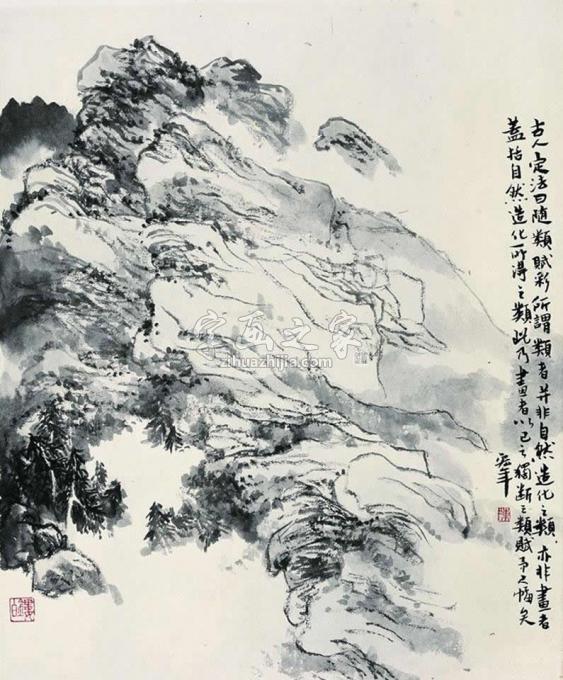 古人定法曰隨類賦彩所謂類者并非自然造化之類亦非畫者
蓋指自然造化所得之類此乃畫者以己之獨斷之類賦予尺幅矣
宏年
字画之家
zihuazhijia.com